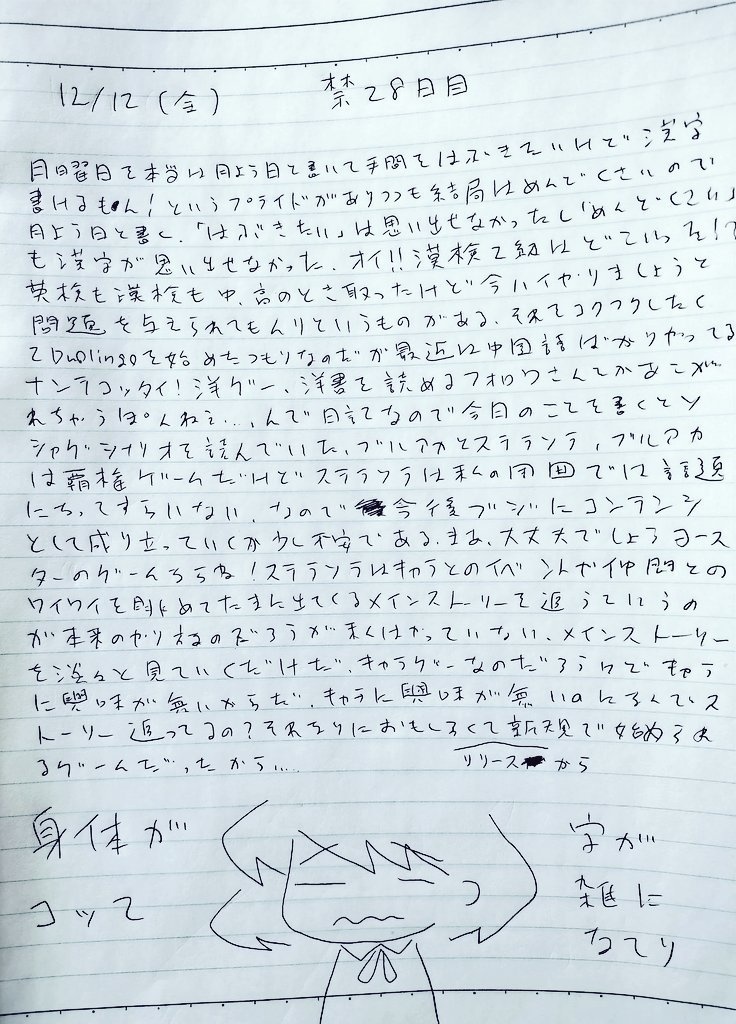 12/12(金) 禁28日目
月曜日を本当は月よう日と書いて手間をはぶきたいけど漢字
書けるもん!というプライドがありつつも結局はめんどくさいので
月よう日と書く、「はぶきたい」は思い出せなかったし「めんどくさい」
も漢字が思い出せなかった、オイ!!漢検2級はどこいった!?
英検も漢検も中、高のとき取ったけど今ハイやりましょうと
問題を与えられてもムリというものがある、それでコツコツしたく
てDuolingoを始めたつもりなのだが最近は中国語ばかりやってる
ナンテコッタイ!洋ゲー、洋書を読めるフォロワさんてかあこが
れちゃうぽんねぇ…、んで日記なので今日のことを書くとソ
シャゲシナリオを読んでいた、ブルアカとステランテ、ブルアカ
は覇権ゲームだけどステランテは私の周囲では話題
になってすらいない、なので今後ブジにコンテンツ
として成り立っていくか少し不安である、まぁ、大丈夫でしょうヨース
ターのゲームならね!ステランテはキャラとのイベントが仲間との
ワイワイを眺めてたまに出てくるメインストーリーを追うていうの
が本来のやり方なのだろうが私はやっていない、メインストーリー
を淡々と見ていくだけだ、キャラゲーなのだろうけどキャラ
に興味が無いからだ、キャラに興味が無いのになんでス
トーリー追ってるの?それなりにおもしろくて新規で始められ
るゲームだったから…
リリースから
身体が
コッて
字が
雑に
なてり